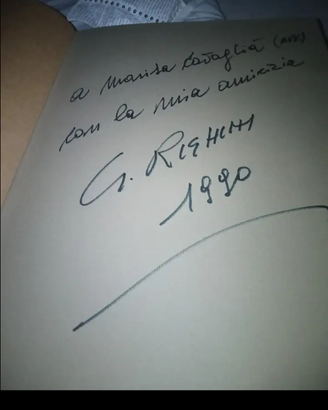 a Marisa Lavaglià
con la mia amicizia
G. RIGHINI
1990